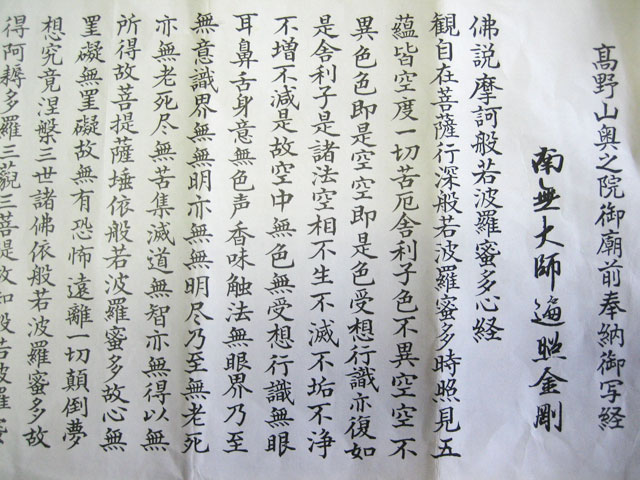 髙野山奥之院御廟前奉納御写経
南無大師遍照金剛
佛説摩訶般若波羅蜜多心経
観自在菩薩行深般若波羅蜜多時照見五
蘊皆空度一切苦厄舎利子色不異空空不
異色色即是空空即是色受想行識亦復如
是舎利子是諸法空相不生不滅不垢不浄
不増不減是故空中無色無受想行識無眼
耳鼻舌身意無色声香味触法無眼界乃至
無意識界無無明亦無無明尽乃至無老死
亦無老死尽無苦集滅道無智亦無得以無
所得故菩提薩埵依般若波羅蜜多故心無
罣礙無罣礙故無有恐怖遠離一切顛倒夢
想究竟涅槃三世諸佛依般若波羅蜜多故
得阿耨多羅三藐三菩提故知般若波羅蜜